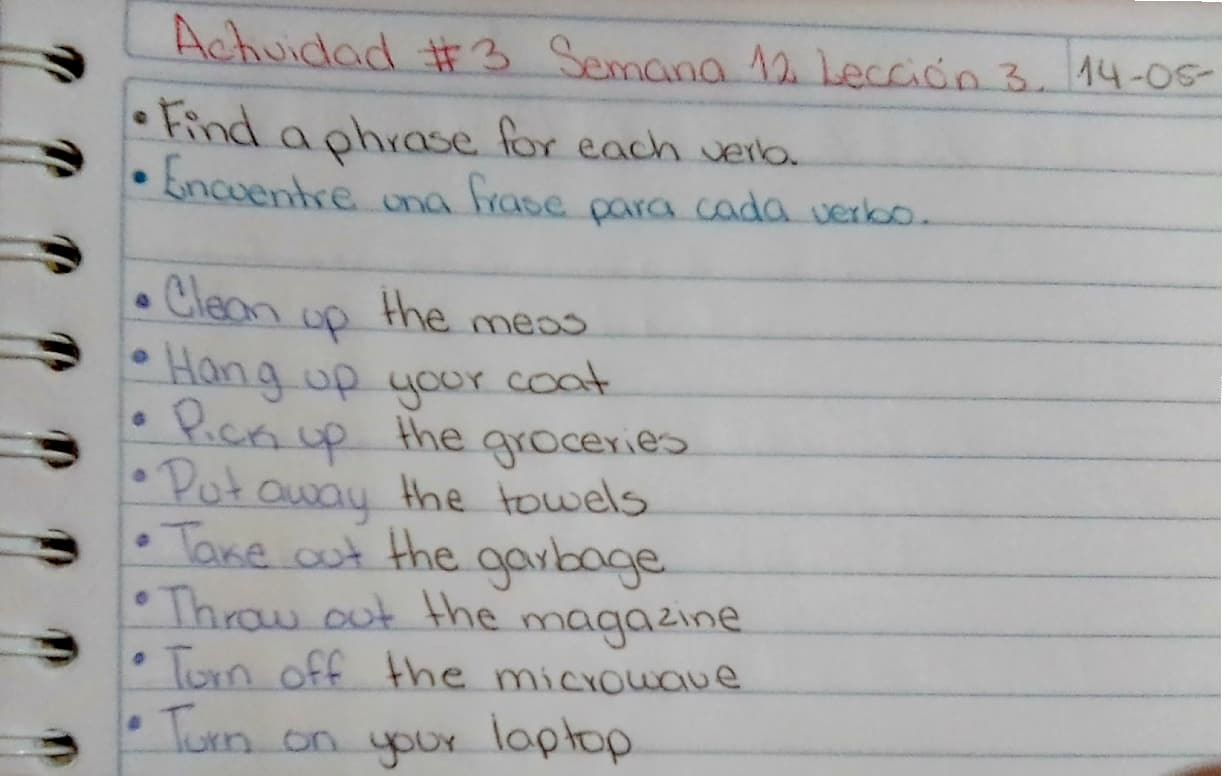 Actividad #3 Semana 12 Lección 3. 14-05-
• Find a phrase for each verb.
• Encuentre una frase para cada verbo.
• Clean up the mess
• Hang up your coat
• Pick up the groceries
• Put away the towels
• Take out the garbage
• Throw out the magazine
• Turn off the microwave
• Turn on your laptop